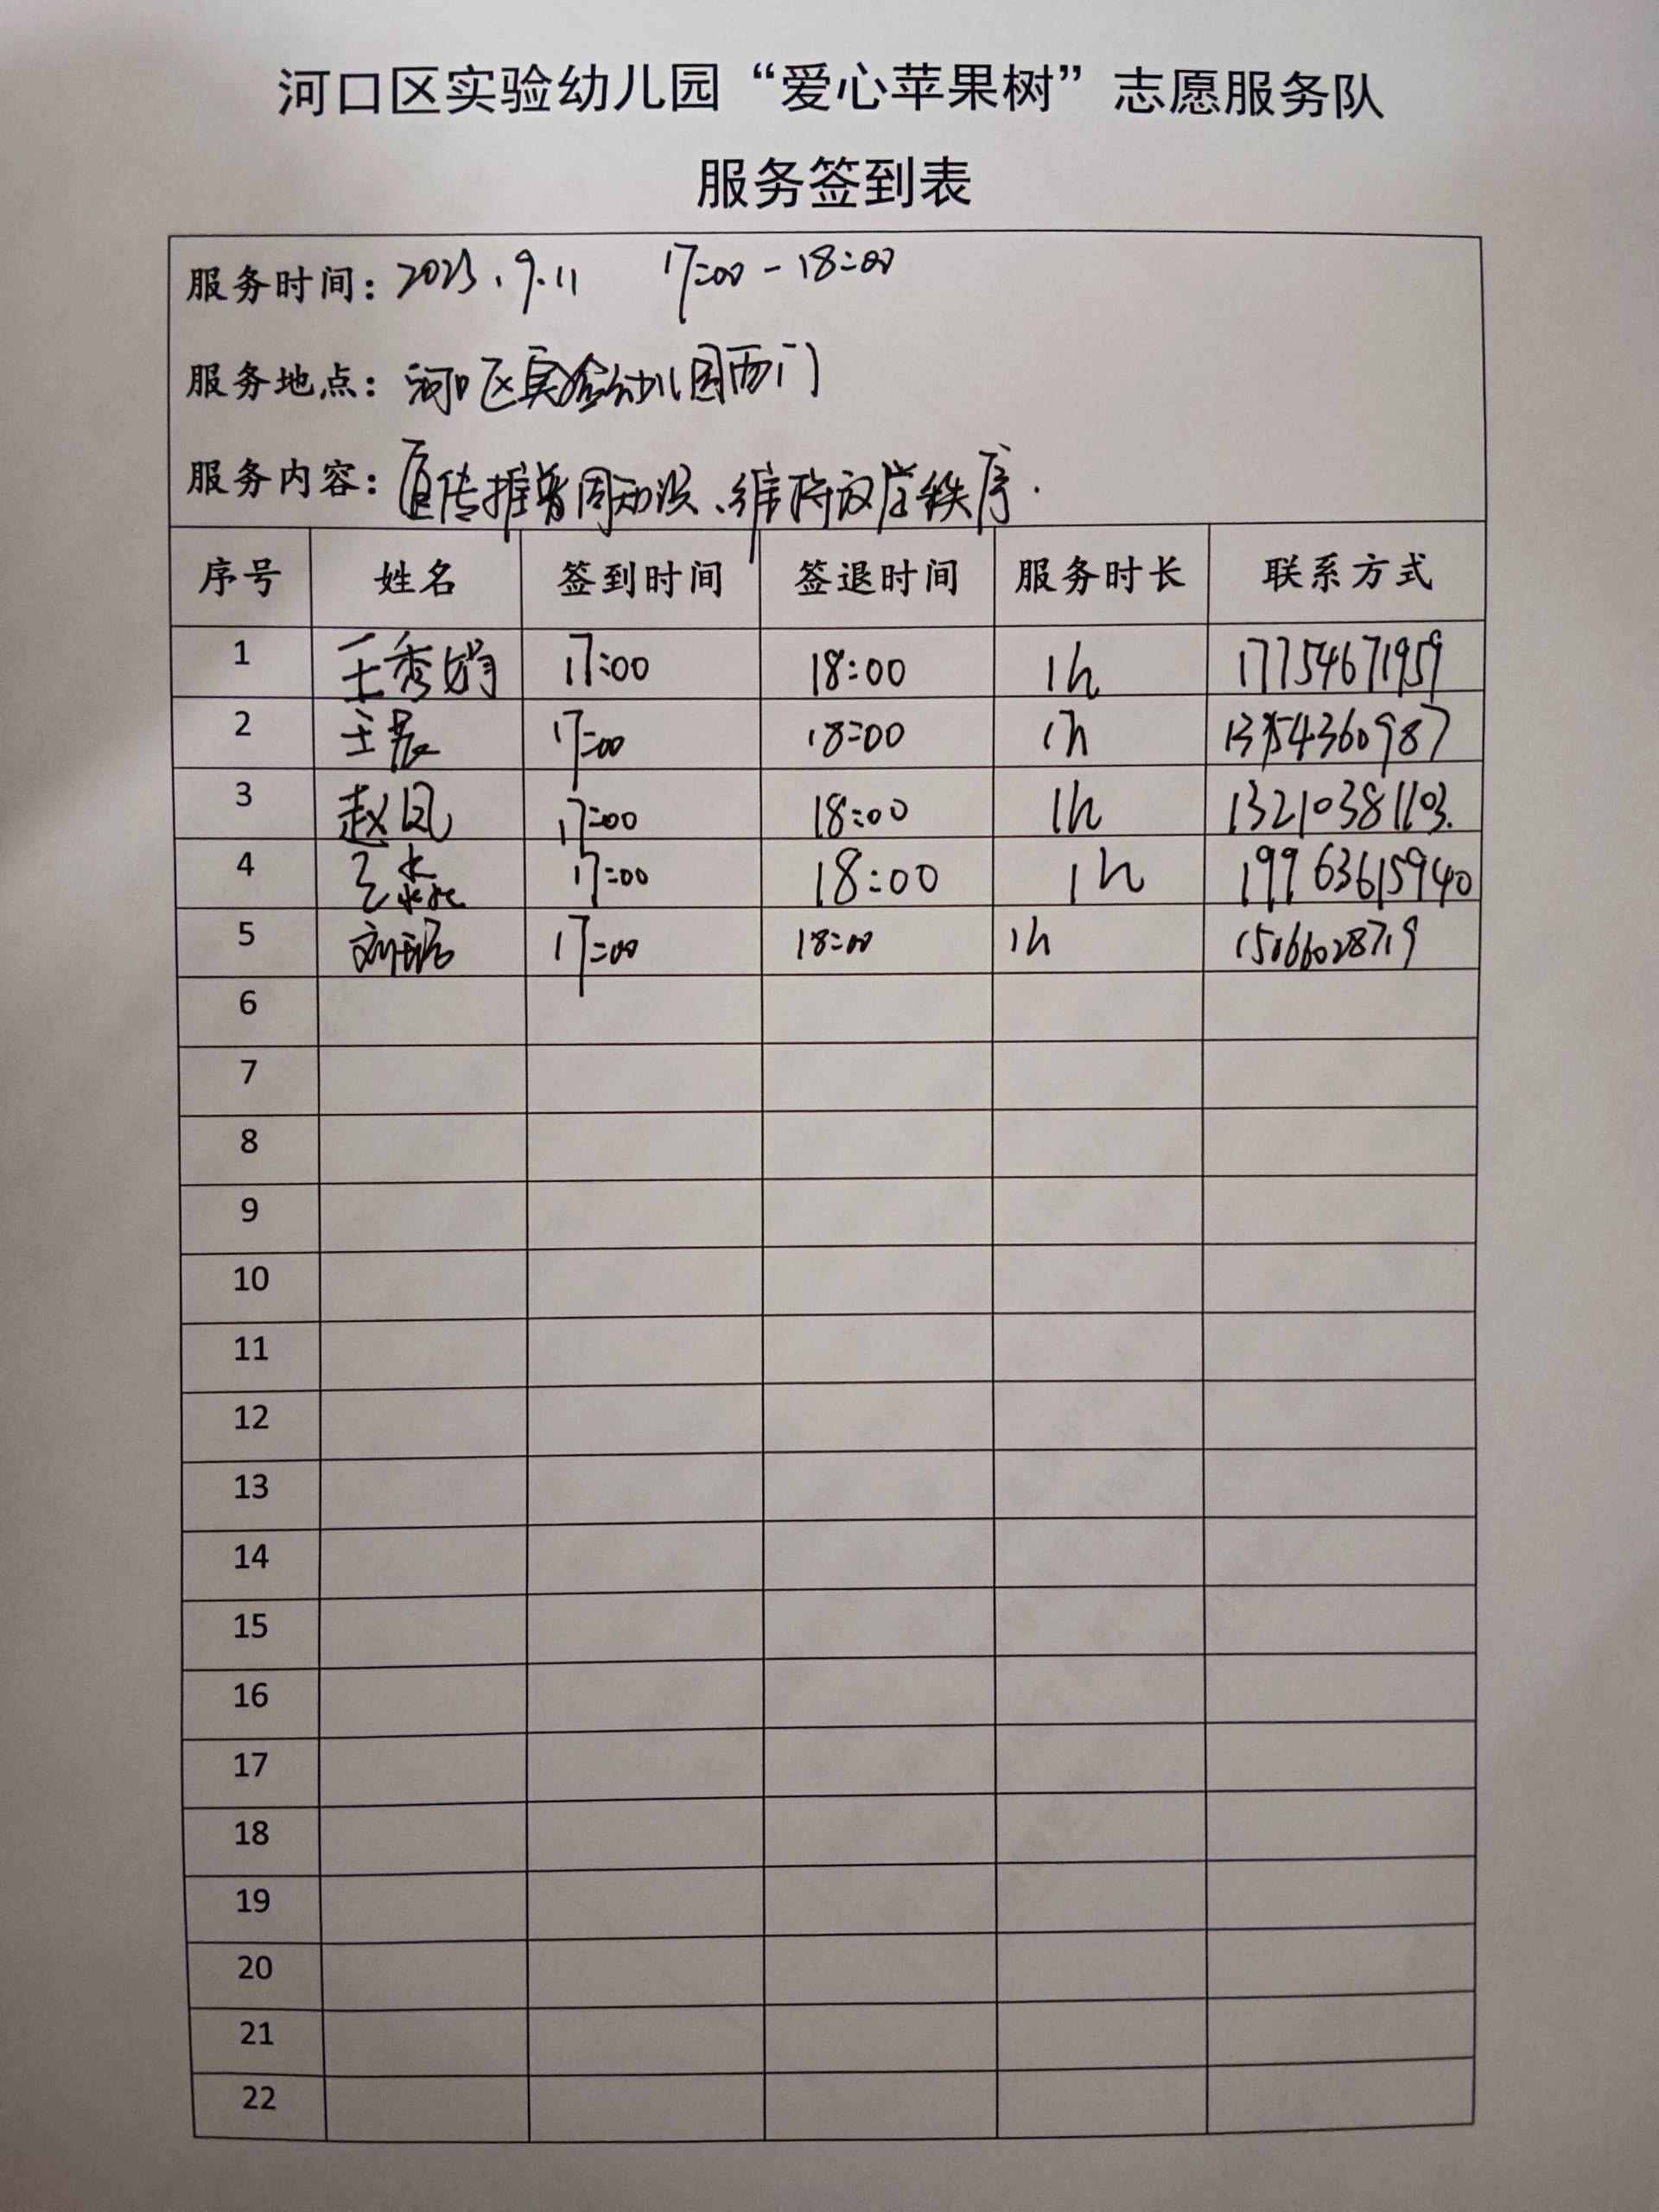 河口区实验幼儿园“爱心苹果树”志愿服务队
服务签到表
服务时间：2023.9.11 17:00-18:00
服务地点：河口区实验幼儿园西门
服务内容：宣传推普周知识、维持放学秩序.
序号 姓名 签到时间 签退时间 服务时长 联系方式
1 王秀娟 17:00 18:00 1h 17754671959
2 王晨 17:00 18:00 1h
3 赵凤 17:00 18:00 1h 13210381103.
4 王淼淼 17:00 18:00 1h 19963615940
5 刘 17:00 18:00 1h 15066028719
6
7
8
9
10
11
12
13
14
15
16
17
18
19
20
21
22